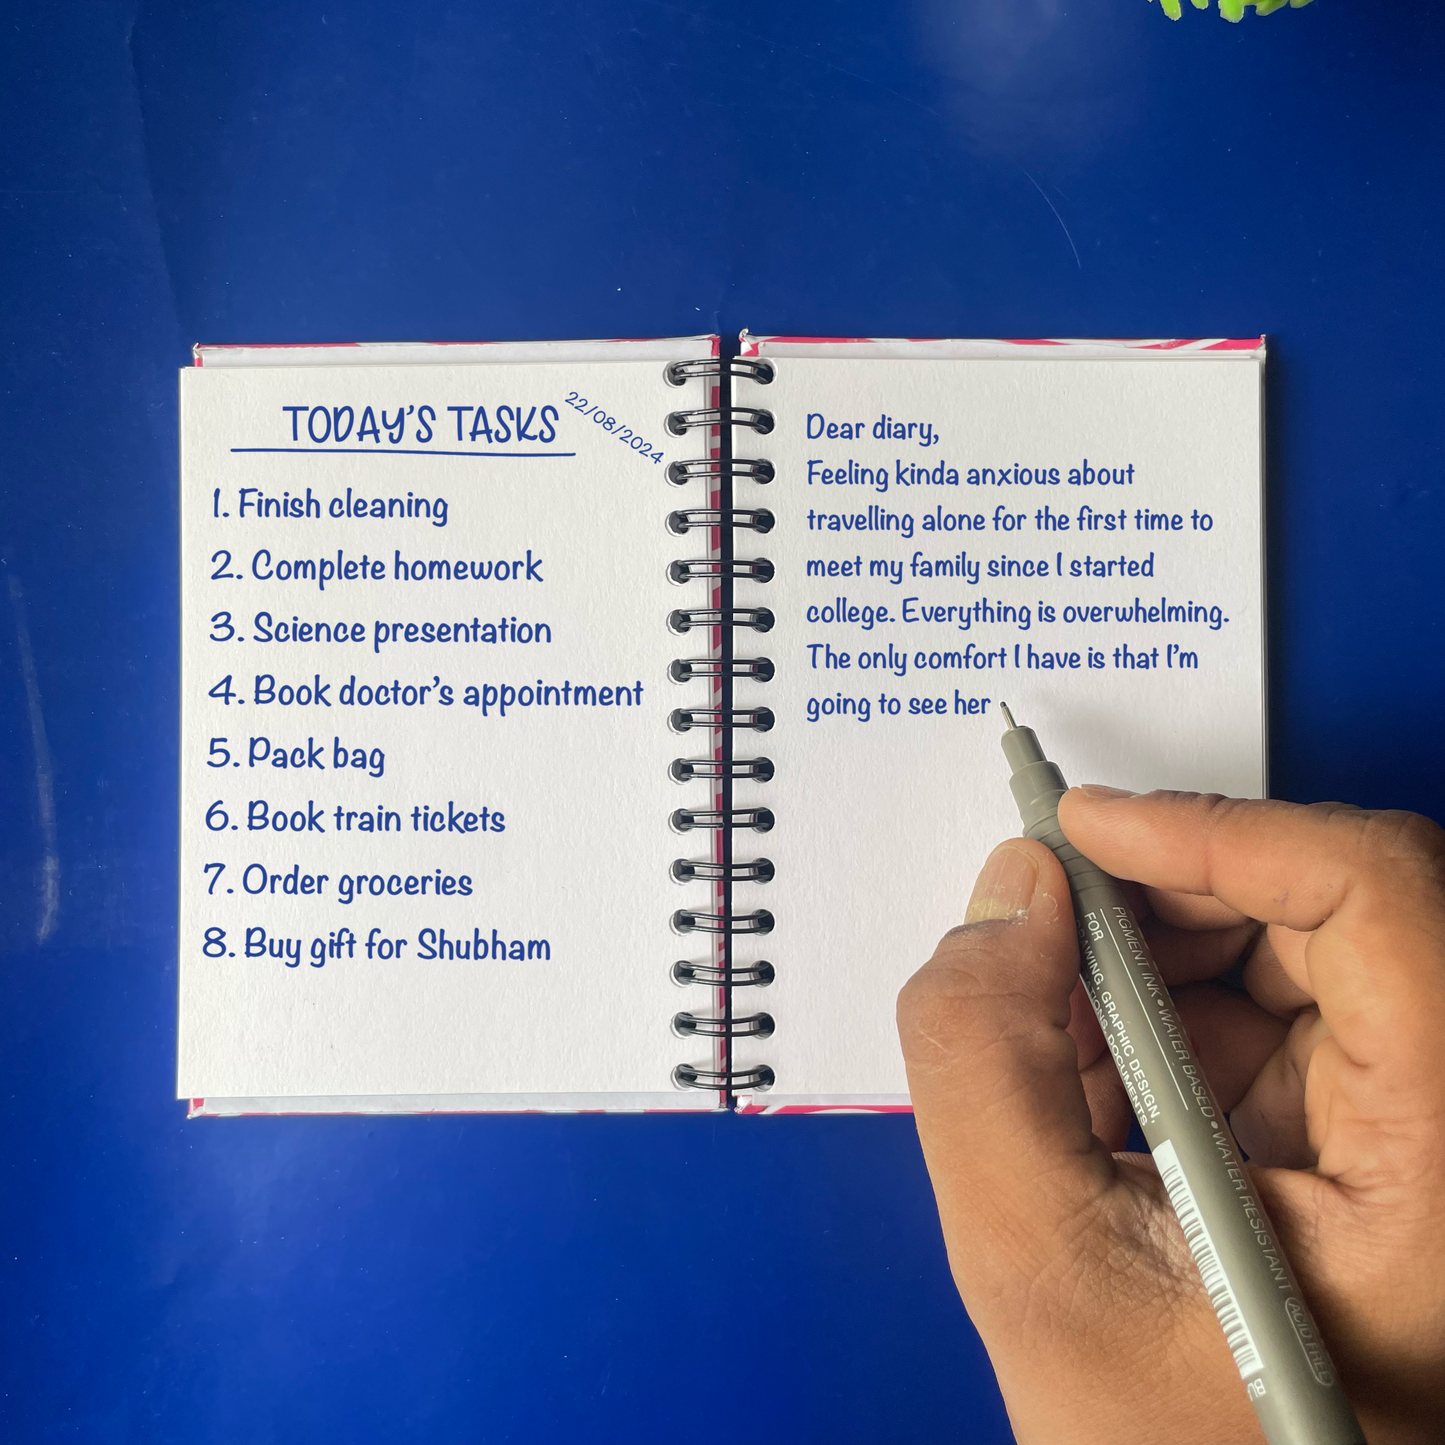 TODAY'S TASKS
22/08/2024
1. Finish cleaning
2. Complete homework
3. Science presentation
4. Book doctor's appointment
5. Pack bag
6. Book train tickets
7. Order groceries
8. Buy gift for Shubham
Dear diary,
Feeling kinda anxious about
travelling alone for the first time to
meet my family since I started
college. Everything is overwhelming.
The only comfort I have is that I'm
going to see her
PIGMENT INK • WATER BASED • WATER RESISTANT ACID FREE
FOR
GRAPHIC DESIGN,
DOCUMENTS